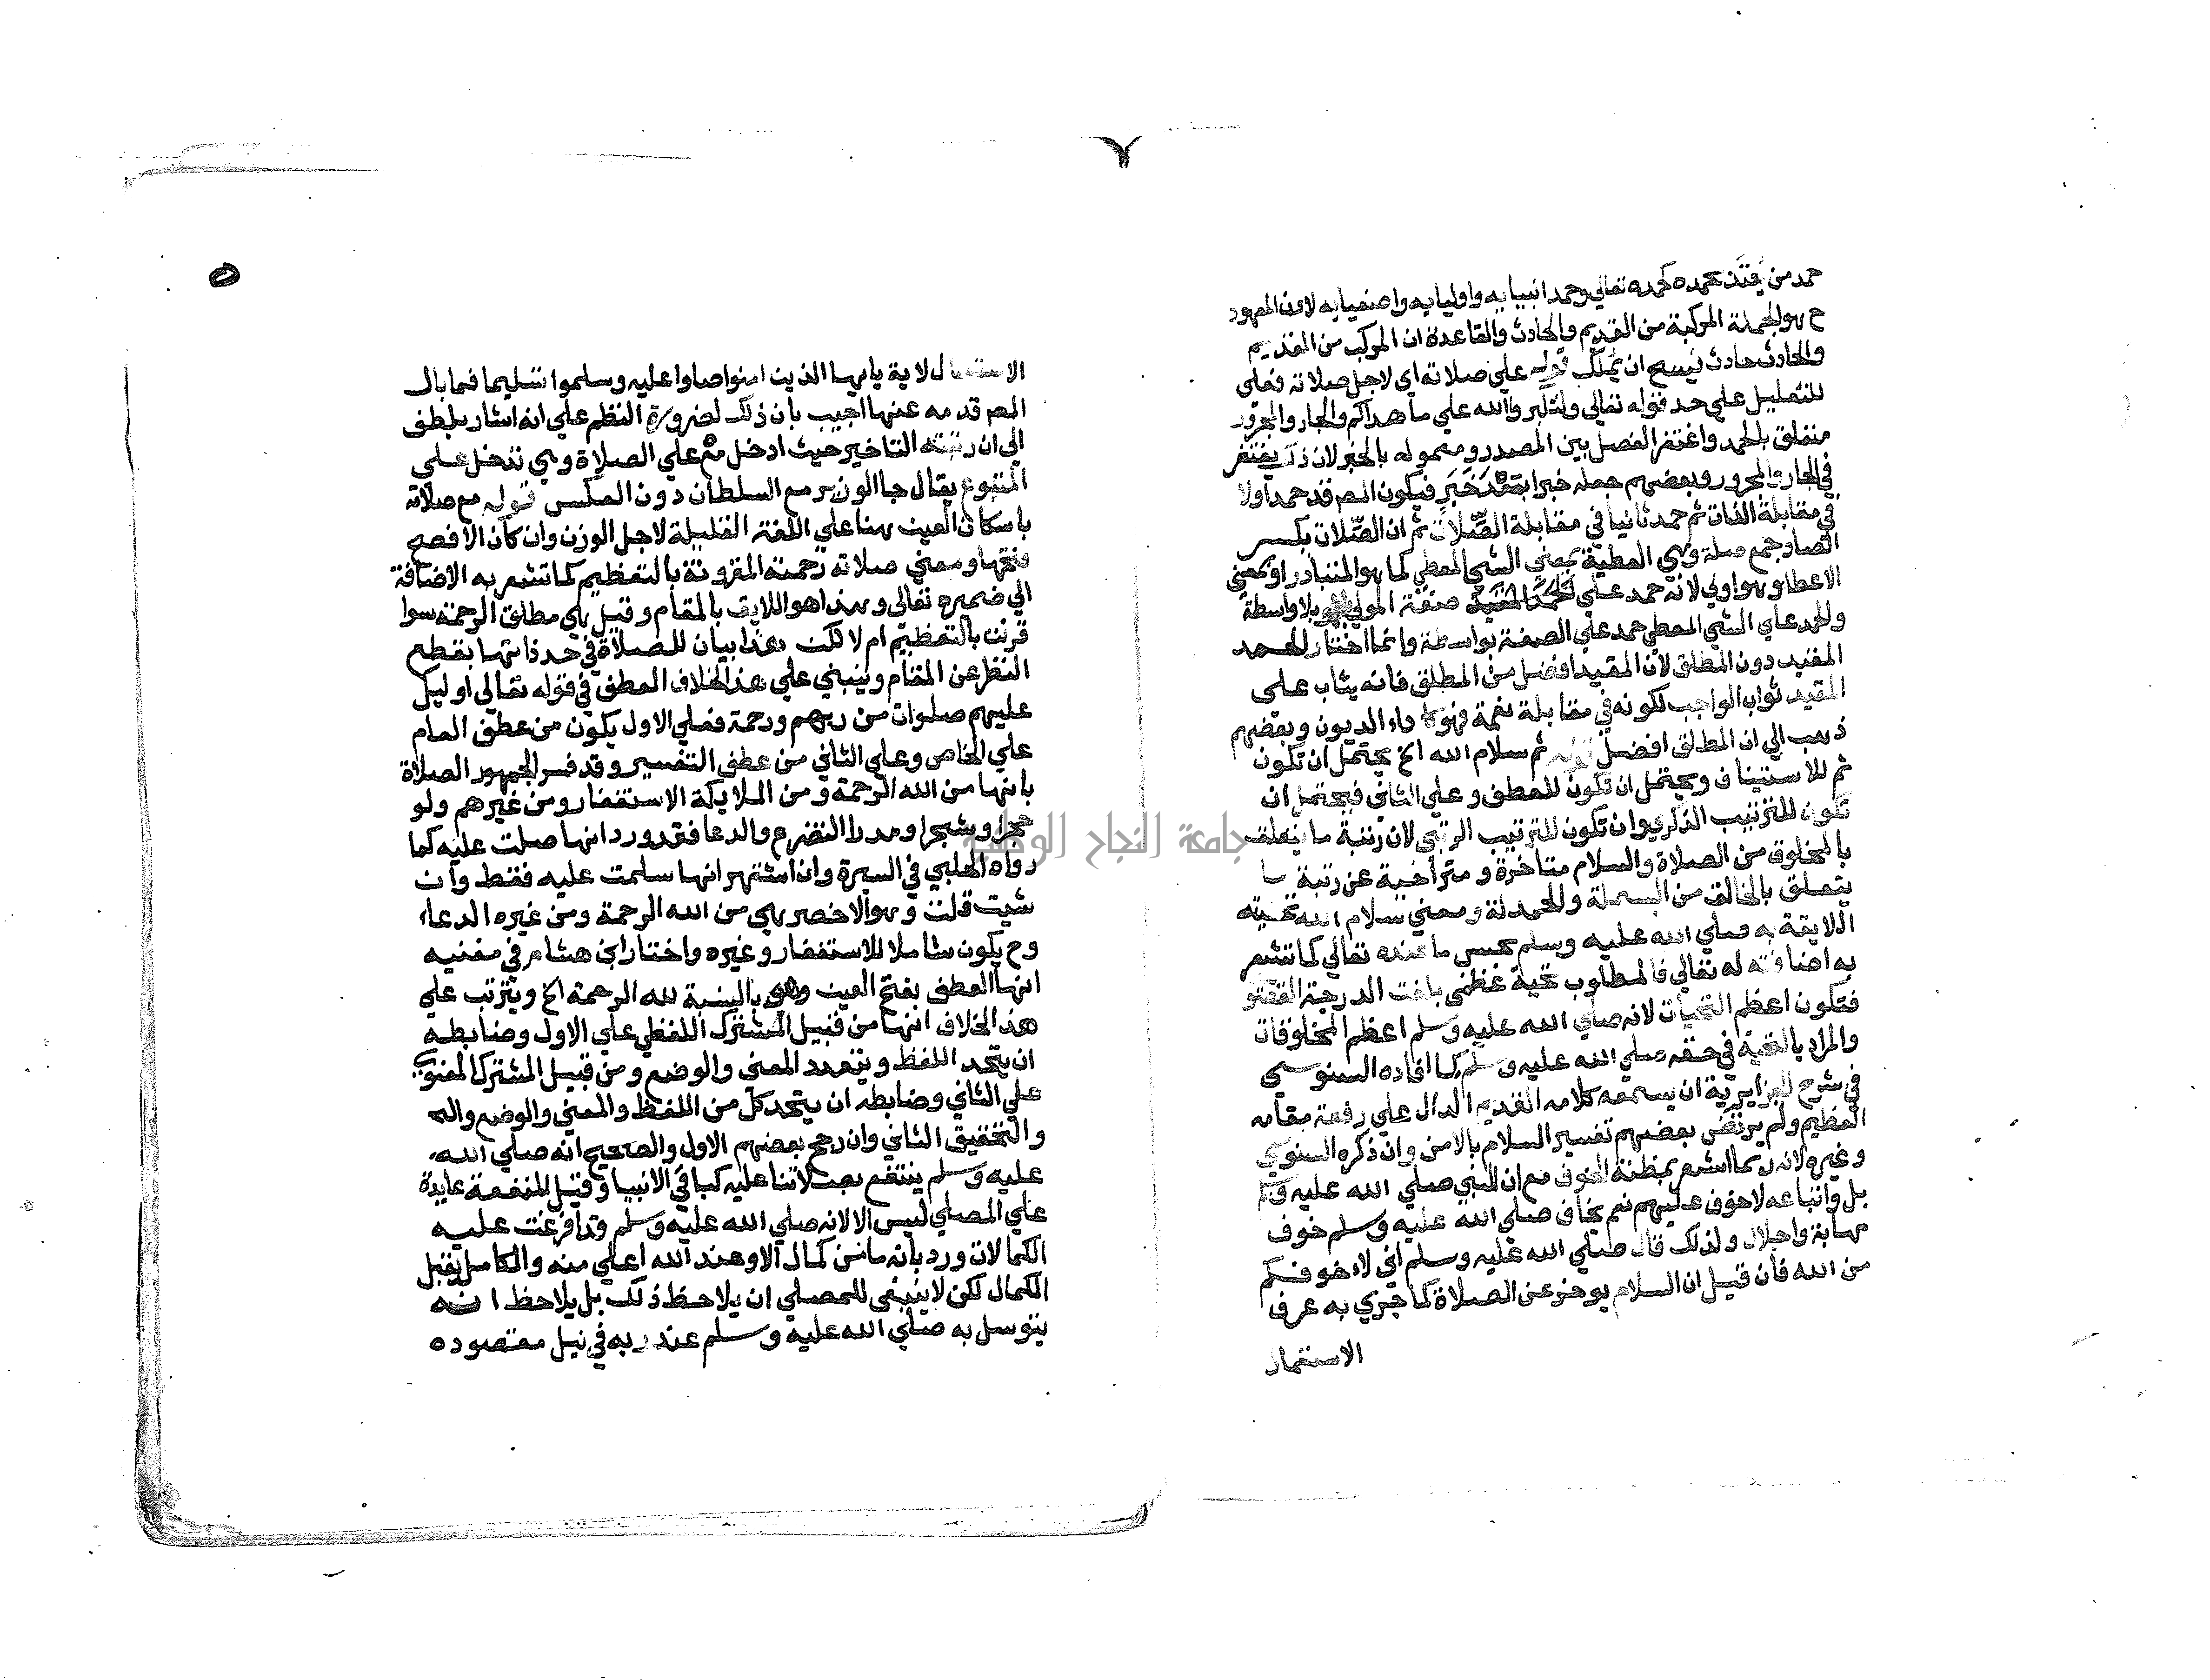 ٧
حمد من يعتد بحمده كحمده تعالي وحمد انبيايه واوليايه واصفيايه لان المعهود
ح هو الجملة المركبة من القديم والحادث والقاعدة ان المركب من القديم
والحادث حادث فيصح ان يملك قوله علي صلاته اي لاجل صلاته فعلي
للتعليل علي حد قوله تعالي ولتكبروا الله علي ما هداكم والجار والمجرور
متعلق بالحمد واغتفر الفصل بين المصدر ومعموله بالخبر لان ذلك يغتفر
في الجار والمجرور وبعضهم جعله خبرا بعد خبر فيكون المص قد حمد اولا
في مقابلة الذات ثم حمد ثانيا في مقابلة الصلات ثم ان الصلات بكسر
الصاد جمع صلة وهي العطية بمعني الشي المعطي كما هو المتبادر او بمعني
الاعطا وهو اولي لانه حمد علي صفة المولي بلا واسطة
والحمد علي الشي المعطي حمد علي الصفة بواسطة وانما اختار الحمد
المقيد دون المطلق لان المقيد افضل من المطلق فانه يثاب علي
المقيد ثواب الواجب لكونه في مقابلة نعمة فهو كاداء الديون وبعضهم
ذهب الي ان المطلق افضل قوله ثم سلام الله الخ يحتمل ان تكون
ثم للاستيناف ويحتمل ان تكون للعطف وعلي الثاني فيحتمل ان
تكون للترتيب الذكري وان تكون للترتيب الرتبي لان رتبة ما يتعلق
بالمخلوق من الصلاة والسلام متاخرة ومتراخية عن رتبة ما
يتعلق بالخالق من البسملة والحمدلة ومعني سلام الله تحيته
اللايقة به صلي الله عليه وسلم بحسب ما عنده تعالي كما تشعر
به اضافته له تعالي فالمطلوب تحية عظمي بلغت الدرجة القصوي
فتكون اعظم التحيات لانه صلي الله عليه وسلم اعظم المخلوقات
والمراد بالتحية في حقه صلي الله عليه وسلم كما افاده السنوسي
في شرح الجزايرية ان يسمعه كلامه القديم الدال علي رفعة مقامه
العظيم ولم يرتض بعضهم تفسير السلام بالامن وان ذكره السنوسي
وغيره لانه ربما اشعر بمظنة الخوف مع ان النبي صلي الله عليه وسلم
بل واتباعه لا خوف عليهم نعم يخاف صلي الله عليه وسلم خوف
مهابة واجلال ولذلك قال صلي الله عليه وسلم اني لاخوفكم
من الله فان قيل ان السلام يوخر عن الصلاة كما جري به عرف
الاستعمال
٥
الاستعمال لاية يايها الذين امنوا صلوا عليه وسلموا تسليما فما بال
المص قدمه عنها اجيب بان ذلك لضرورة النظم علي انه اشار بلطف
الي ان رتبته التاخير حيث ادخل مع علي الصلاة وهي تدخل علي
المتبوع يقال جا الوزير مع السلطان دون العكس قوله مع صلاته
باسكان العين هنا علي اللغة القليلة لاجل الوزن وان كان الافصح
فتحها ومعني صلاته رحمته المقرونة بالتعظيم كما تشعر به الاضافة
الي ضميره تعالي وهذا هو اللايق بالمقام وقيل هي مطلق الرحمة سوا
قرنت بالتعظيم ام لا لكن هذا بيان للصلاة في حد ذاتها بقطع
النظر عن المقام وينبني علي هذا الخلاف العطف في قوله تعالي اوليك
عليهم صلوات من ربهم ورحمة فعلي الاول يكون من عطف العام
علي الخاص وعلي الثاني من عطف التفسير وقد فسر الجمهور الصلاة
بانها من الله الرحمة ومن الملايكة الاستغفار ومن غيرهم ولو
حجرا وشجرا ومدرا التضرع والدعا فقد ورد انها صلت عليه كما
رواه الحلبي في السيرة وان اشتهر انها سلمت عليه فقط وان
شيت قلت وهو الاخصر هي من الله الرحمة ومن غيره الدعاء
وح يكون شاملا للاستغفار وغيره واختار ابن هشام في مغنيه
انها العطف بفتح العين وهو بالنسبة لله الرحمة الخ ويترتب علي
هذا الخلاف انها من قبيل المشترك اللفظي علي الاول وضابطه
ان يتحد اللفظ ويتعدد المعني والوضع ومن قبيل المشترك المعنوي
علي الثاني وضابطه ان يتحد كل من اللفظ والمعني والوضع
والتحقيق الثاني وان رجح بعضهم الاول والصحيح انه صلي الله
عليه وسلم ينتفع بصلاتنا عليه كباقي الانبيا وقيل المنفعة عايدة
علي المصلي ليس الا لانه صلي الله عليه وسلم قد افرغت عليه
الكمالات ورد بانه ما من كمال الا وعند الله اعلي منه والكامل يقبل
الكمال لكن لا ينبغي للمصلي ان يلاحظ ذلك بل يلاحظ انه
يتوسل به صلي الله عليه وسلم عند ربه في نيل مقصوده
جامعة النجاح الوطنية